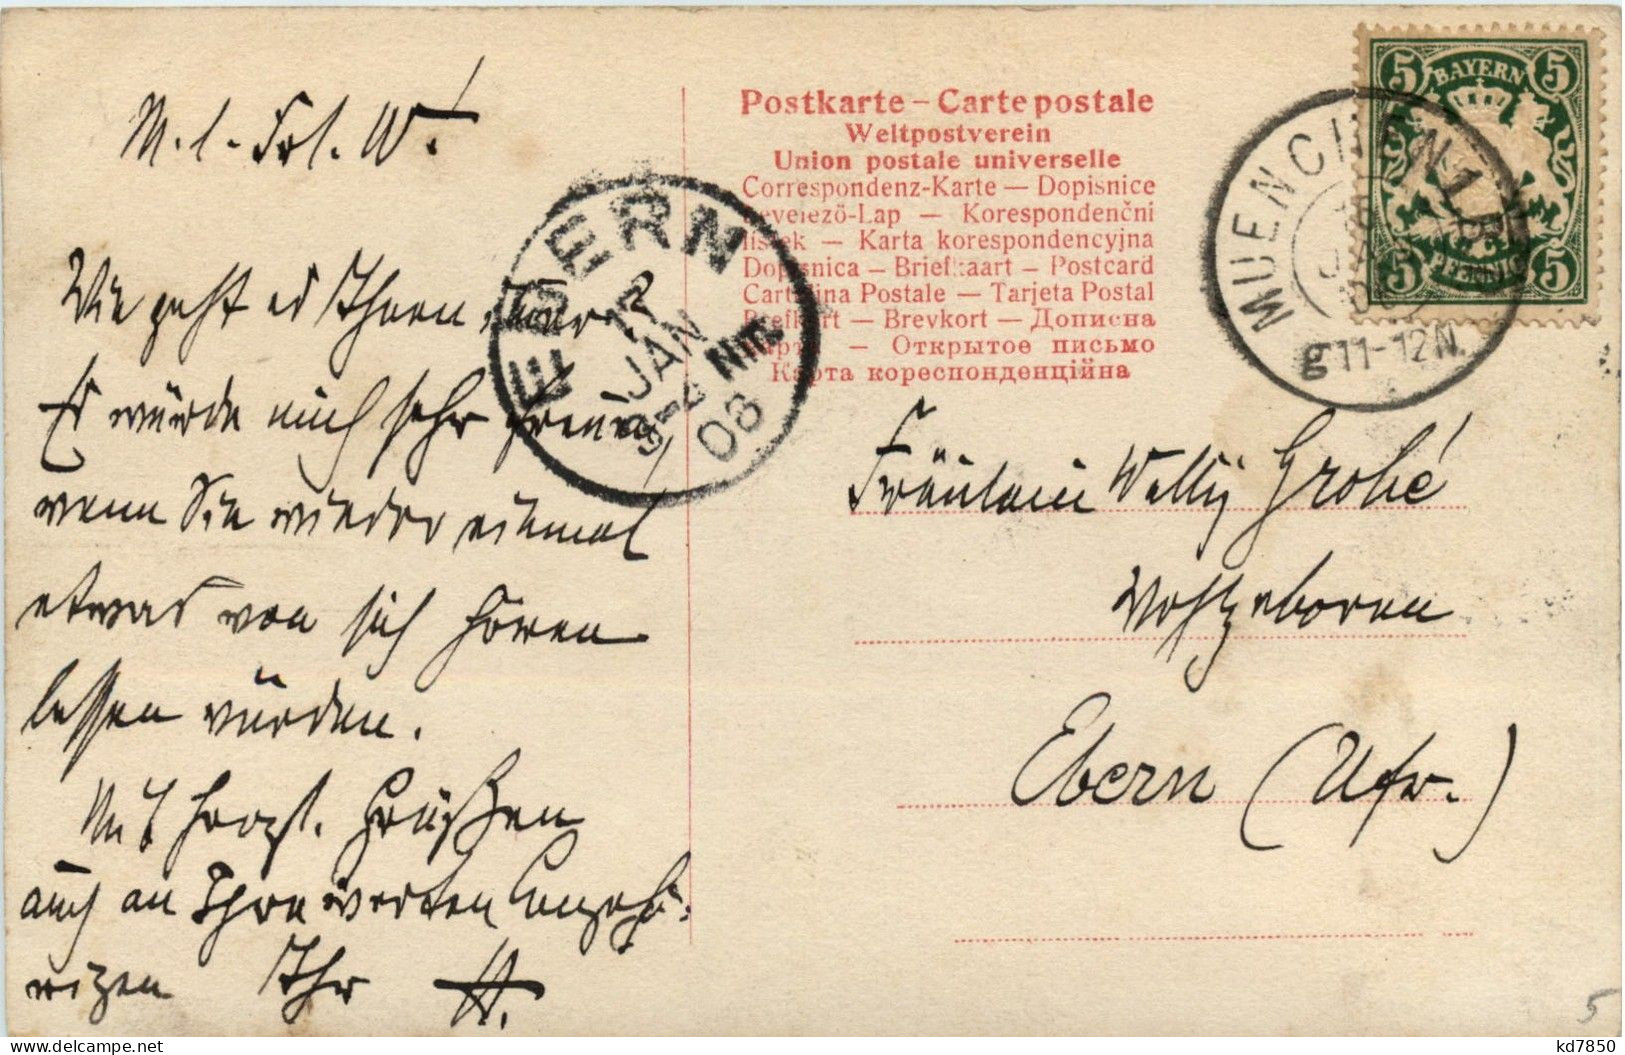 M. l. Frl. W.!
Wie geht es Ihnen,
Es würde mich sehr freuen,
wenn Sie wieder einmal
etwas von sich hören
lassen würden.
Mit herzl. Grüßen
auch an Ihre werten Angehö-
rigen Ihr H.
EBERN
JAN
08
Postkarte – Carte postale
Weltpostverein
Union postale universelle
Correspondenz-Karte — Dopisnice
Levelező-Lap — Korespondenční
lístek — Karta korespondencyjna
Dopisnica — Briefkaart — Postcard
Cartolina Postale — Tarjeta Postal
Brefkort — Brevkort — Дописна
карта — Открытое письмо
Карта кореспонденційна
BAYERN
5 5
5 5
MUENCHEN 1.
g 11-12 N.
Fräulein Willy Grohé
Wohlgeboren
Ebern (Ufr.)
5
kd7850